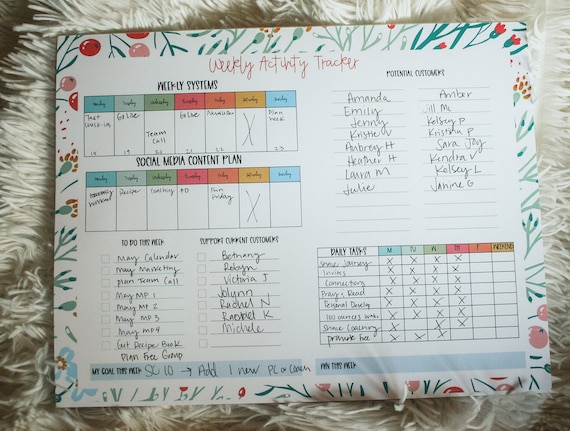 Weekly Activity Tracker
WEEKLY SYSTEMS
Monday Tuesday Wednesday Thursday Friday Saturday Sunday
Text Go Live Go Live Newsletter Plan Week
Team Call
X
19 20 21 22 23
SOCIAL MEDIA CONTENT PLAN
Monday Tuesday Wednesday Thursday Friday Saturday Sunday
workout Recipe Coaching Fun Friday
X
TO DO THIS WEEK
May Calendar
May Marketing
Plan Team Call
May MP 1
May MP 2
May MP 3
May MP 4
Get Recipe Book
Plan Free Group
SUPPORT CURRENT CUSTOMERS
Bethany
Robyn
Victoria J
Jolynn
Rachel N
Rachel K
Michele
MY GOAL THIS WEEK SC 10 → Add 1 new PC or Coach
POTENTIAL CUSTOMERS
Amanda Amber
Emily Jill M
Jenny Kelsey P
Kristie W Kristina P
Aubrey H Sara Joy
Heather H Kendra V
Laura M Kelsey L
Julie Janine G
DAILY TASKS M TU W TH F WEEKEND
Share Journey X X X X
Invites X X X X
Connections X X X X
Pray + Read X X X X
Personal Develop X X X X
100 ounces water X X X X
Coaching X X X
promote free X X X
WIN THIS WEEK